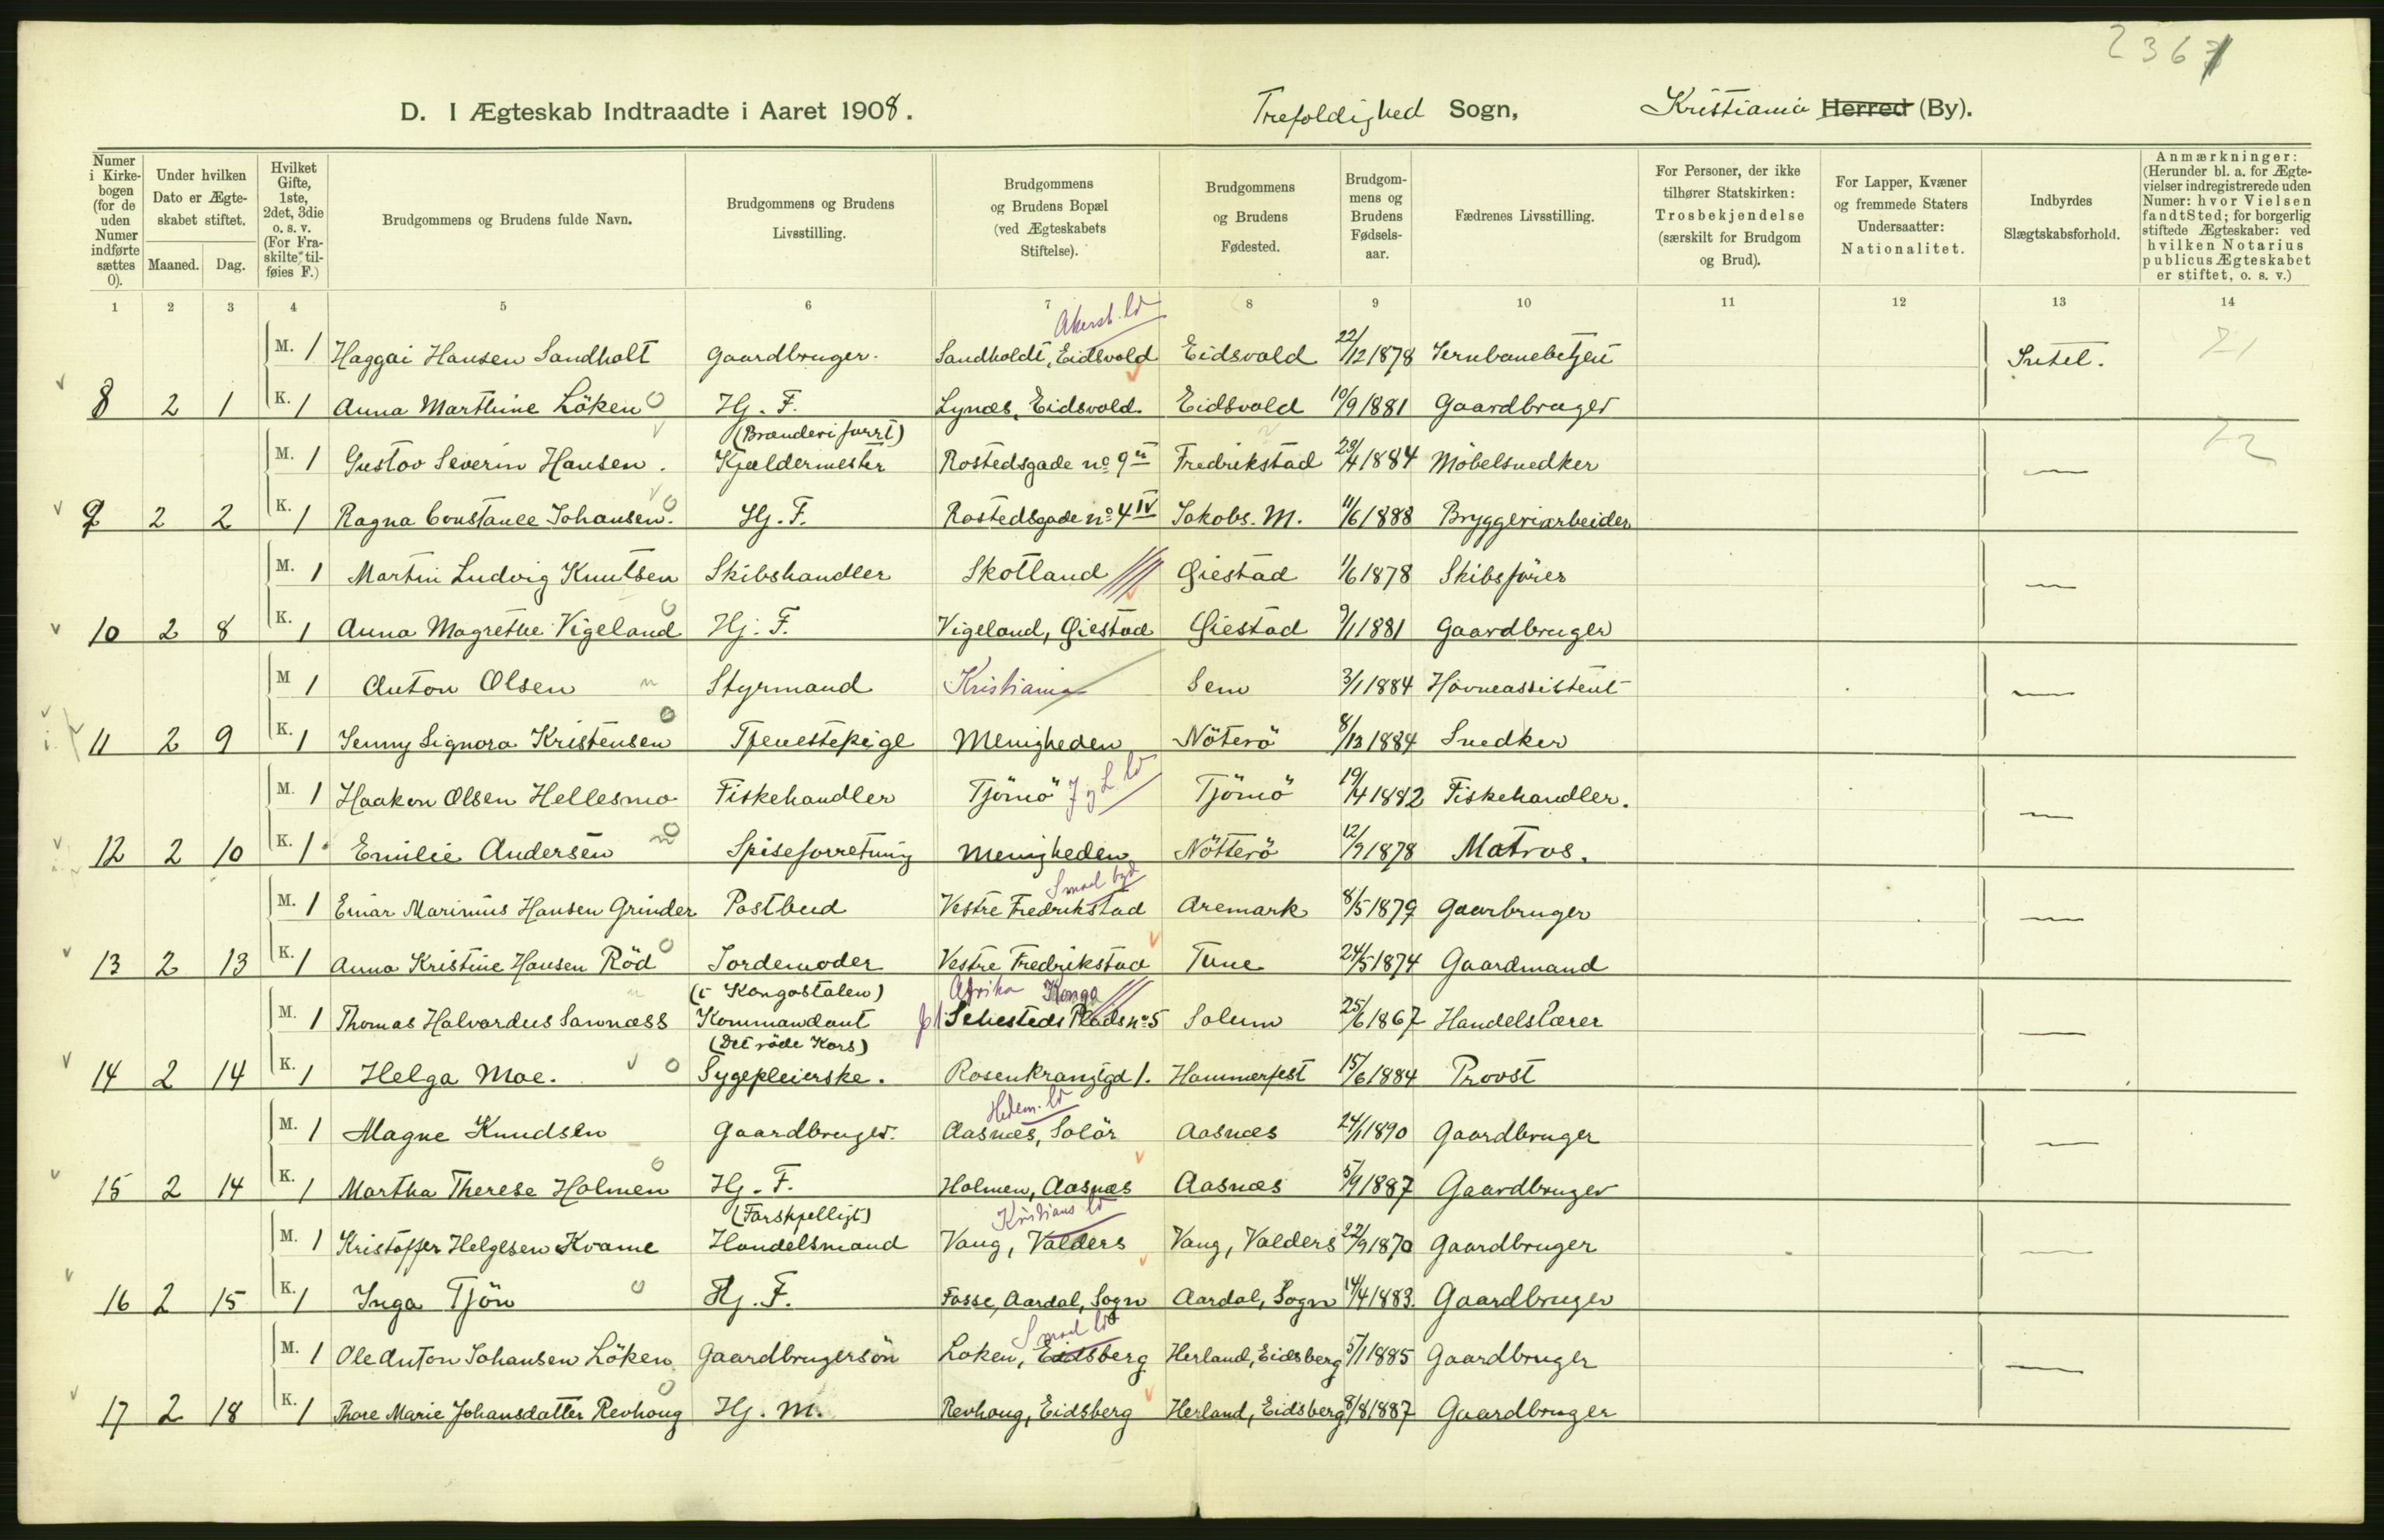 2367
D. I Ægteskab Indtraadte i Aaret 1908.
Trefoldighed Sogn,
Kristiania Herred (By).
Numer i Kirkebogen (for de uden Numer indførte sættes 0).
Under hvilken Dato er Ægteskabet stiftet.
Maaned. Dag.
Hvilket Gifte, 1ste, 2det, 3die o. s. v. (For Fraskilte tilføies F.)
Brudgommens og Brudens fulde Navn.
Brudgommens og Brudens Livsstilling.
Brudgommens og Brudens Bopæl (ved Ægteskabets Stiftelse).
Brudgommens og Brudens Fødested.
Brudgommens og Brudens Fødselsaar.
Fædrenes Livsstilling.
For Personer, der ikke tilhører Statskirken: Trosbekjendelse (særskilt for Brudgom og Brud).
For Lapper, Kvæner og fremmede Staters Undersaatter: Nationalitet.
Indbyrdes Slægtskabsforhold.
Anmærkninger: (Herunder bl. a. for Ægtevielser indregistrerede uden Numer: hvor Vielsen fandt Sted; for borgerlig stiftede Ægteskaber: ved hvilken Notarius publicus Ægteskabet er stiftet, o. s. v.)
1 2 3 4 5 6 7 8 9 10 11 12 13 14
Akersh. ld
M. 1 Haggai Hansen Sandholt Gaardbruger. Sandholdt, Eidsvold Eidsvold 22/12 1878 Jernbanebetjent Intet. 21
8 2 1 K. 1 Anna Marthine Löken Hj. F. Lynæs, Eidsvold. Eidsvold 10/9 1881 Gaardbruger
(Brænderi forrt)
M. 1 Gustav Severin Hansen. Kjældermester Rostedsgade no 9 II Fredrikstad 29/4 1884 Möbelsnedker — 22
9 2 2 K. 1 Ragna Constance Johansen. Hj. F. Rostedsgade no 4 IV Jakobs. M. 11/6 1888 Bryggeriarbeider
M. 1 Martin Ludvig Knutsen Skibshandler Skotland Øiestad 1/6 1878 Skibsförer —
10 2 8 K. 1 Anna Magrethe Vigeland Hj. F. Vigeland, Øiestad Øiestad 9/1 1881 Gaardbruger
M 1 Anton Olsen Styrmand Kristiania Sem 3/1 1884 Havneassistent —
11 2 9 K. 1 Jenny Signora Kristensen Tjenestepige Menigheden Nöterö 8/12 1884 Snedker
M. 1 Haakon Olsen Hellesmo Fiskehandler Tjömö J. g L. ld Tjömö 19/4 1882 Fiskehandler. —
12 2 10 K. 1 Emilie Andersen Spiseforretning Menigheden Nötterö 12/9 1878 Matros.
Smaal byd
M. 1 Einar Marinius Hansen Grinder Postbud Vestre Fredrikstad Aremark 8/5 1879 Gaarbruger —
13 2 13 K. 1 Anna Kristine Hansen Röd Jordemoder Vestre Fredrikstad Tune 24/5 1874 Gaardmand
(i Kongostaten) Afrika Kongo
M. 1 Thomas Halvardus Sannæss Kommandant Sehesteds Plads no 5 Solum 25/6 1867 Handelslærer —
(Det röde Kors)
14 2 14 K. 1 Helga Moe. Sygepleierske. Rosenkrantzgd 1. Hammerfest 15/6 1884 Provst
Hedem. ld
M. 1 Magne Knudsen Gaardbruger. Aasnæs, Solör Aasnæs 24/1 1890 Gaardbruger —
15 2 14 K. 1 Martha Therese Holmen Hj. F. Holmen, Aasnæs Aasnæs 5/9 1887 Gaardbruger
(Forskjelligt) Kristians ld
M. 1 Kristoffer Helgesen Kvame Handelsmand Vang, Valders Vang, Valders 22/9 1870 Gaardbruger —
16 2 15 K. 1 Inga Tjön Hj. F. Fosse, Aardal, Sogn Aardal, Sogn 14/4 1883. Gaardbruger
Smaal ld
M. 1 Ole Anton Johansen Löken Gaardbrugersön Loken, Eidsberg Herland, Eidsberg 5/1 1885 Gaardbruger —
17 2 18 K. 1 Thore Marie Johansdatter Revhoug Hj. M. Revhoug, Eidsberg Herland, Eidsberg 8/8 1887 Gaardbruger